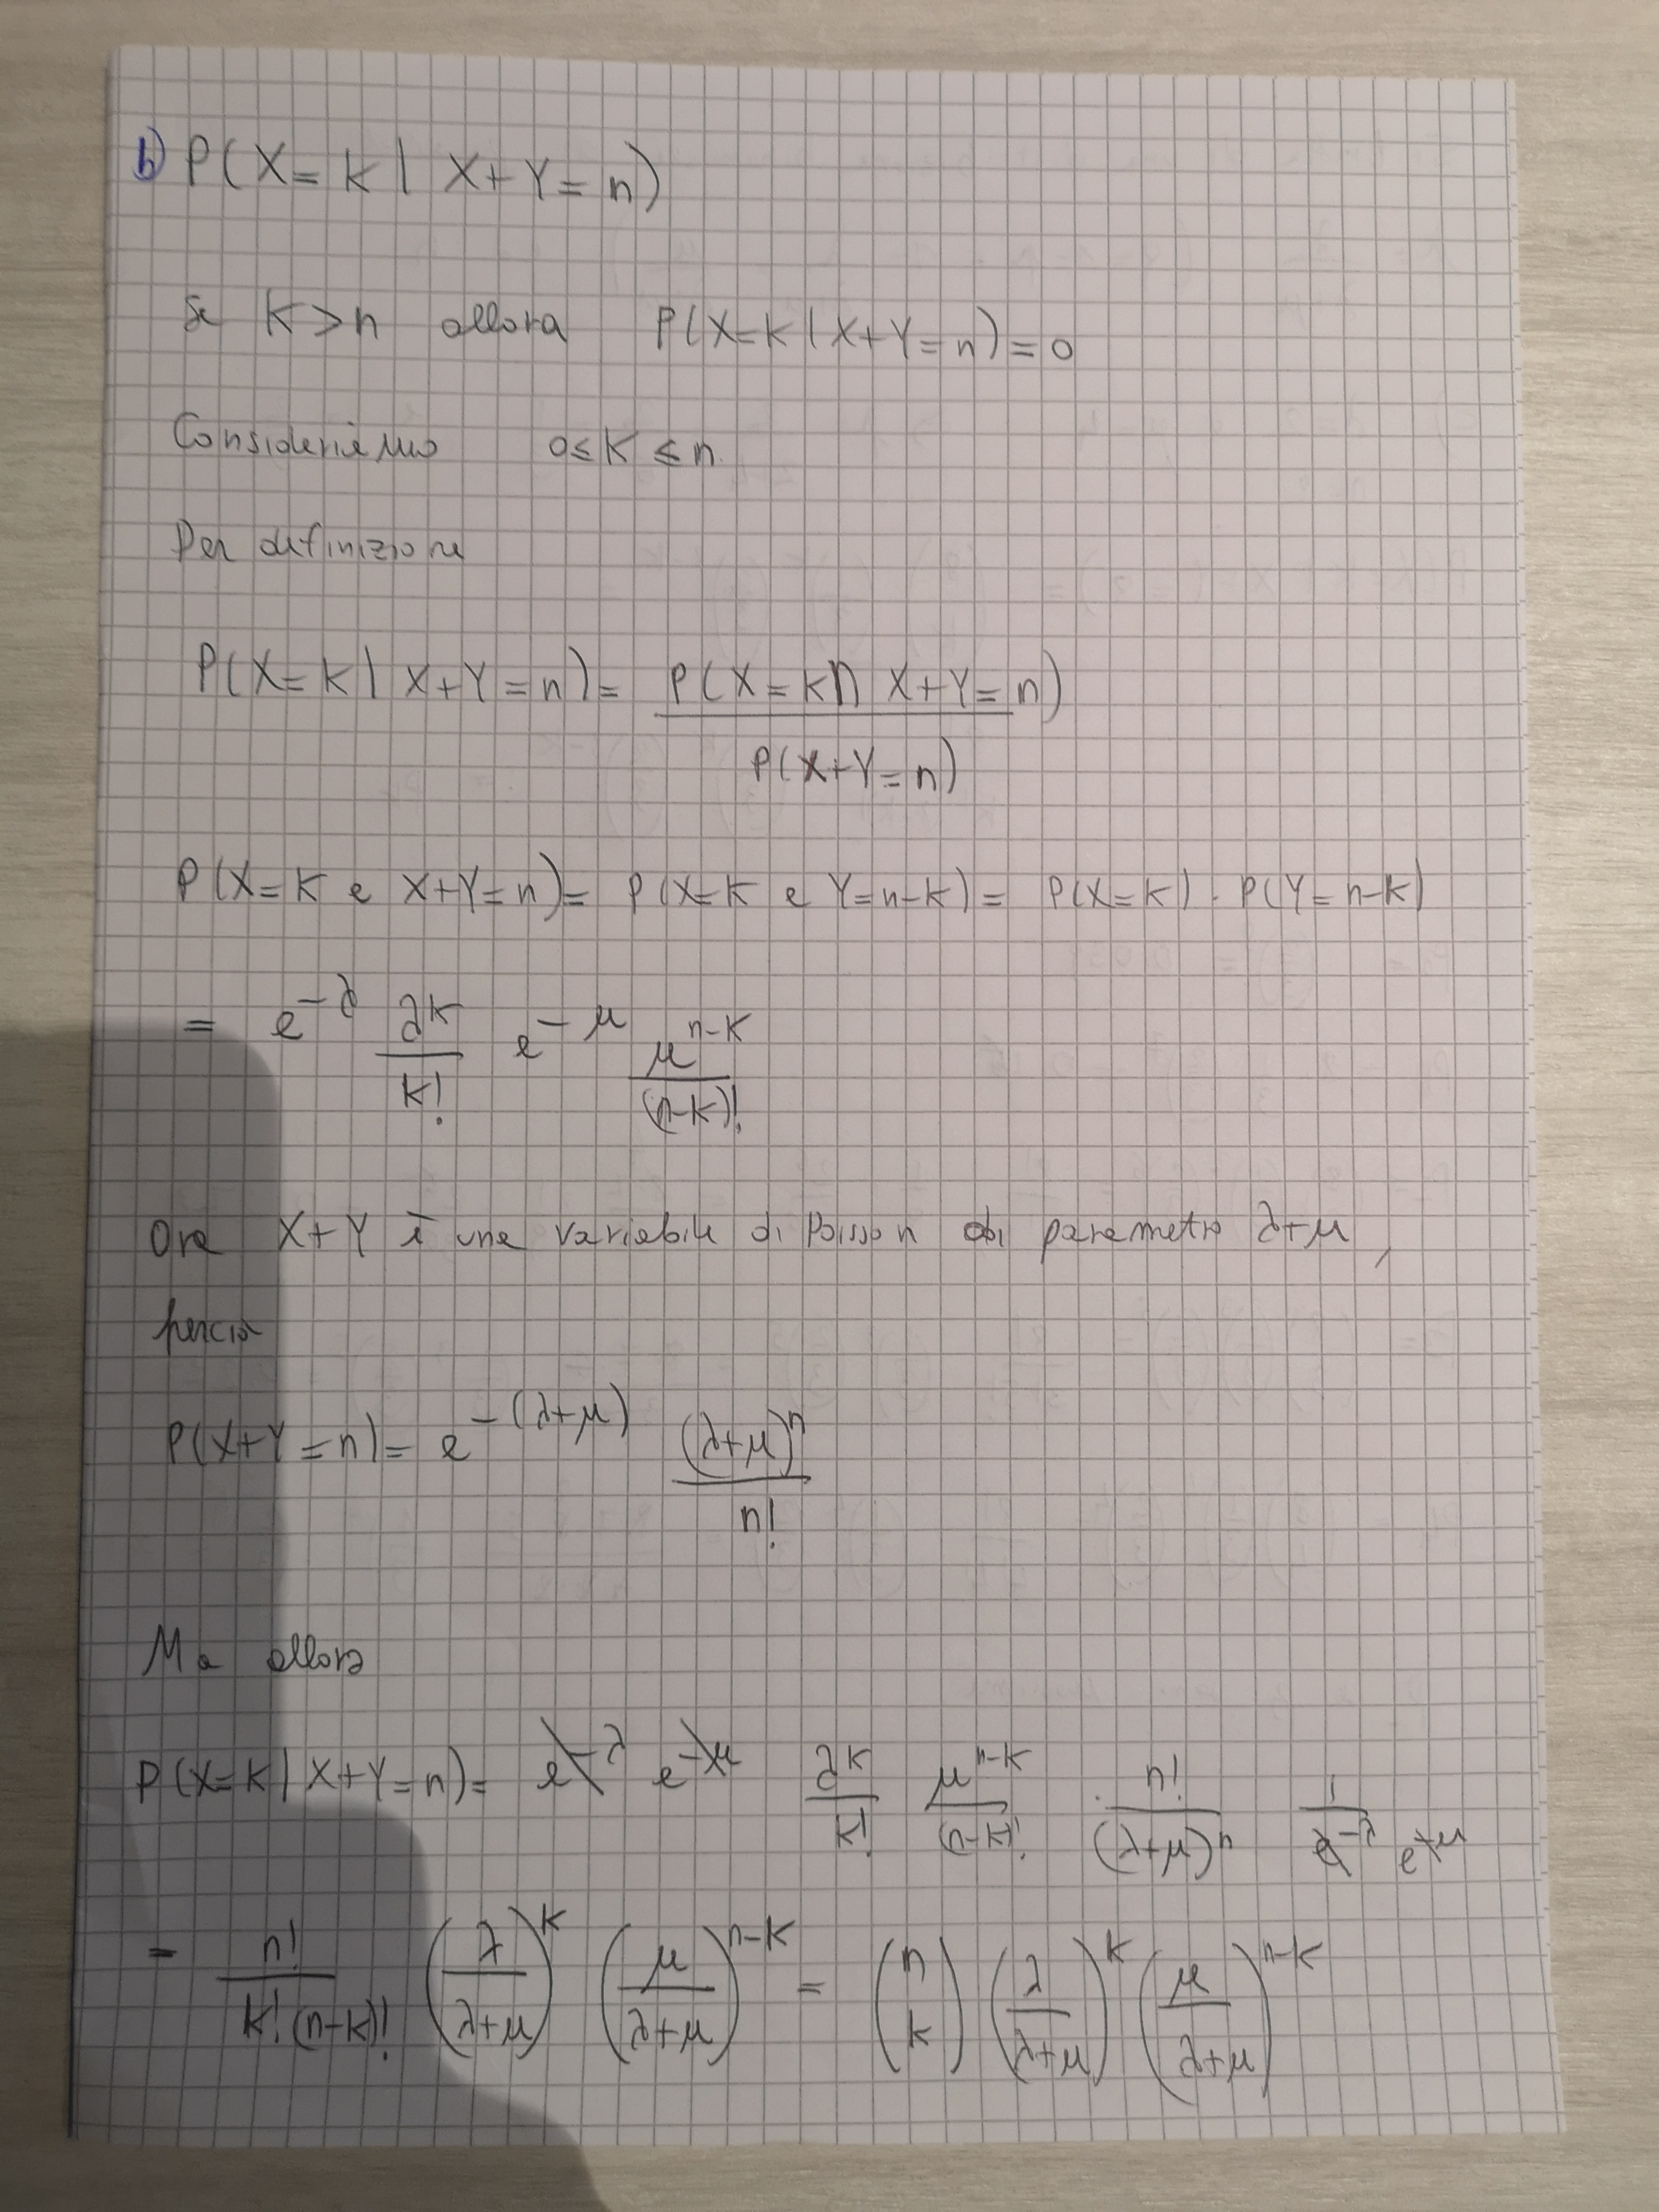 b) P(X=k | X+Y=n)
Se k>n allora P(X=k | X+Y=n)=0
Consideriamo 0≤k≤n.
Per definizione
P(X=k | X+Y=n) = P(X=k ∩ X+Y=n) / P(X+Y=n)
P(X=k e X+Y=n) = P(X=k e Y=n-k) = P(X=k) · P(Y=n-k)
= e^{-λ} λ^k / k! e^{-μ} μ^{n-k} / (n-k)!
Ora X+Y è una variabile di Poisson di parametro λ+μ,
perciò
P(X+Y=n) = e^{-(λ+μ)} (λ+μ)^n / n!
Ma allora
P(X=k | X+Y=n) = e^{-λ} e^{-μ} λ^k / k! μ^{n-k} / (n-k)! · n! / (λ+μ)^n 1 / e^{-λ} e^{-μ}
= n! / k!(n-k)! (λ / λ+μ)^k (μ / λ+μ)^{n-k} = (n k) (λ / λ+μ)^k (μ / λ+μ)^{n-k}